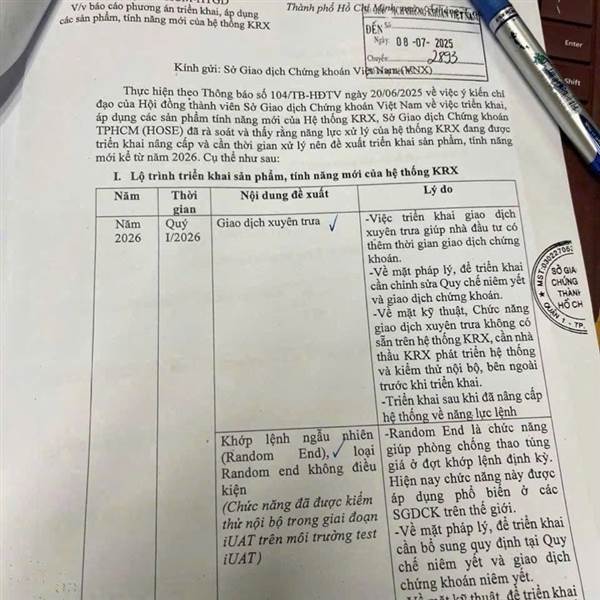 V/v báo cáo phương án triển khai, áp dụng
các sản phẩm, tính năng mới của hệ thống KRX
Thành phố Hồ Chí Minh, ngày
ĐẾN
Số
Ngày: 08-07-2025
Chuyển: 2893
Kính gửi: Sở Giao dịch Chứng khoán Việt Nam (VNX)
Thực hiện theo Thông báo số 104/TB-HĐTV ngày 20/06/2025 về việc ý kiến chỉ
đạo của Hội đồng thành viên Sở Giao dịch Chứng khoán Việt Nam về việc triển khai,
áp dụng các sản phẩm tính năng mới của Hệ thống KRX, Sở Giao dịch Chứng khoán
TPHCM (HOSE) đã rà soát và thấy rằng năng lực xử lý của hệ thống KRX đang được
triển khai nâng cấp và cần thời gian xử lý nên đề xuất triển khai sản phẩm, tính năng
mới kể từ năm 2026. Cụ thể như sau:
I. Lộ trình triển khai sản phẩm, tính năng mới của hệ thống KRX
Năm
Thời
gian
Nội dung đề xuất
Lý do
Năm
2026
Quý
I/2026
Giao dịch xuyên trưa
-Việc triển khai giao dịch
xuyên trưa giúp nhà đầu tư có
thêm thời gian giao dịch chứng
khoán.
-Về mặt pháp lý, để triển khai
cần chỉnh sửa Quy chế niêm yết
và giao dịch chứng khoán.
-Về mặt kỹ thuật, Chức năng
giao dịch xuyên trưa không có
sẵn trên hệ thống KRX, cần nhà
thầu KRX phát triển hệ thống
và kiểm thử nội bộ, bên ngoài
trước khi triển khai.
-Triển khai sau khi đã nâng cấp
hệ thống về năng lực lệnh
Khớp lệnh ngẫu nhiên
(Random End), loại
Random end không điều
kiện
(Chức năng đã được kiểm
thử nội bộ trong giai đoạn
iUAT trên môi trường test
iUAT)
-Random End là chức năng
giúp phòng chống thao túng
giá ở đợt khớp lệnh định kỳ.
Hiện nay chức năng này được
áp dụng phổ biến ở các
SGDCK trên thế giới.
-Về mặt pháp lý, để triển khai
cần bổ sung quy định tại Quy
chế niêm yết và giao dịch
chứng khoán niêm yết.
-Về mặt kỹ thuật, để triển khai
SỞ GIA
CHỨNG
THÀNH
HỒ CH
QUẬN 1 - TP.
Enter
Shift